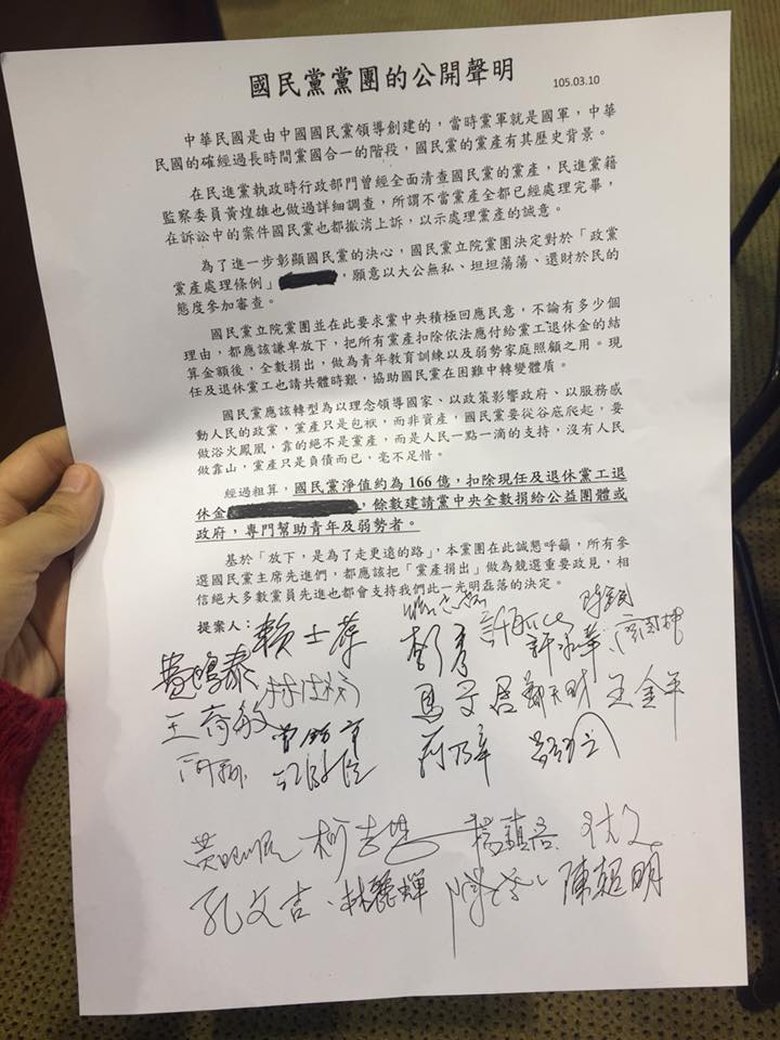 國民黨黨團的公開聲明
105.03.10
中華民國是由中國國民黨領導創建的，當時黨軍就是國軍，中華
民國的確經過長時間黨國合一的階段，國民黨的黨產有其歷史背景。
在民進黨執政時行政部門曾經全面清查國民黨的黨產，民進黨籍
監察委員黃煌雄也做過詳細調查，所謂不當黨產全都已經處理完畢，
在訴訟中的案件國民黨也都撤消上訴，以示處理黨產的誠意。
為了進一步彰顯國民黨的決心，國民黨立院黨團決定對於「政黨
黨產處理條例」，願意以大公無私、坦坦蕩蕩、還財於民的
態度參加審查。
國民黨立院黨團並在此要求黨中央積極回應民意，不論有多少個
理由，都應該謙卑放下，把所有黨產扣除依法應付給黨工退休金的結
算金額後，全數捐出，做為青年教育訓練以及弱勢家庭照顧之用。現
任及退休黨工也請共體時艱，協助國民黨在困難中轉變體質。
國民黨應該轉型為以理念領導國家、以政策影響政府、以服務感
動人民的政黨，黨產只是包袱，而非資產，國民黨要從谷底爬起，要
做浴火鳳凰，靠的絕不是黨產，而是人民一點一滴的支持，沒有人民
做靠山，黨產只是負債而已，毫不足惜。
經過粗算，國民黨淨值約為166億，扣除現任及退休黨工退
休金，餘數建請黨中央全數捐給公益團體或
政府，專門幫助青年及弱勢者。
基於「放下，是為了走更遠的路」，本黨團在此誠懇呼籲，所有參
選國民黨主席先進們，都應該把「黨產捐出」做為競選重要政見，相
信絕大多數黨員先進也都會支持我們此一光明磊落的決定。
提案人：賴士葆
費鴻泰 許淑華
王育敏 鄭天財
孔文吉 林麗蟬 陳超明